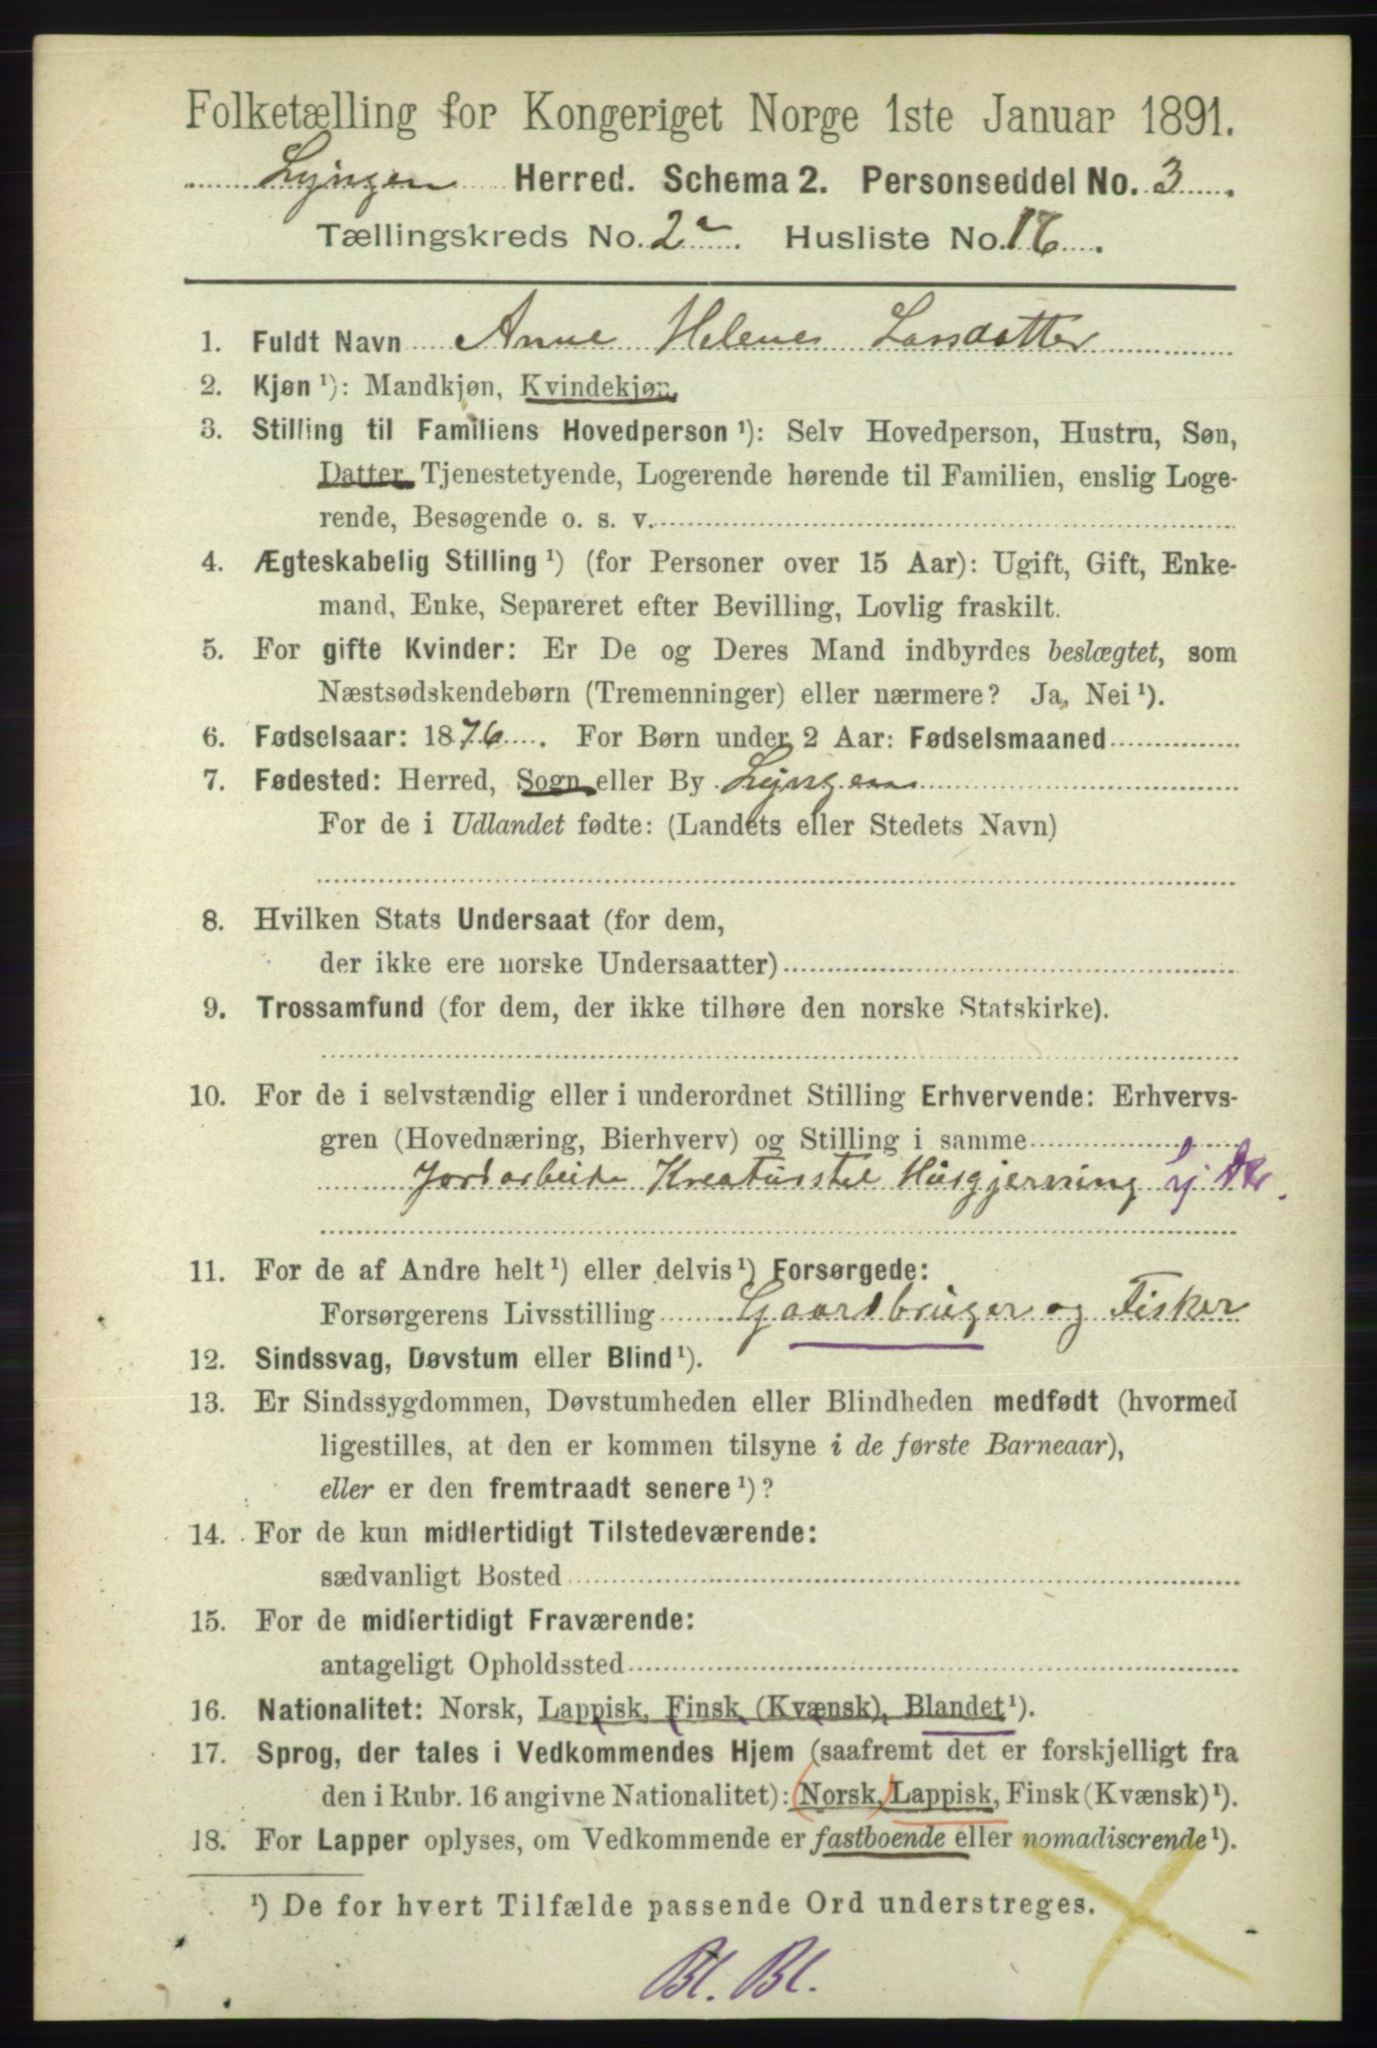 Folketælling for Kongeriget Norge 1ste Januar 1891.
Lyngen Herred. Schema 2. Personseddel No. 3.
Tællingskreds No. 2a. Husliste No. 16.
1. Fuldt Navn Anne Helene Larsdatter
2. Kjøn ¹): Mandkjøn, Kvindekjøn.
3. Stilling til Familiens Hovedperson ¹): Selv Hovedperson, Hustru, Søn,
Datter, Tjenestetyende, Logerende hørende til Familien, enslig Loge-
rende, Besøgende o. s. v.
4. Ægteskabelig Stilling ¹) (for Personer over 15 Aar): Ugift, Gift, Enke-
mand, Enke, Separeret efter Bevilling, Lovlig fraskilt.
5. For gifte Kvinder: Er De og Deres Mand indbyrdes beslægtet, som
Næstsødskendebørn (Tremenninger) eller nærmere? Ja, Nei ¹).
6. Fødselsaar: 1876. For Børn under 2 Aar: Fødselsmaaned
7. Fødested: Herred, Sogn eller By Lyngen
For de i Udlandet fødte: (Landets eller Stedets Navn)
8. Hvilken Stats Undersaat (for dem,
der ikke ere norske Undersaatter)
9. Trossamfund (for dem, der ikke tilhøre den norske Statskirke).
10. For de i selvstændig eller i underordnet Stilling Erhvervende: Erhvervs-
gren (Hovednæring, Bierhverv) og Stilling i samme
Jordarbeide Kreaturstel Husgjerning
11. For de af Andre helt ¹) eller delvis ¹) Forsørgede:
Forsørgerens Livsstilling Gaardbruger og Fisker
12. Sindssvag, Døvstum eller Blind ¹).
13. Er Sindssygdommen, Døvstumheden eller Blindheden medfødt (hvormed
ligestilles, at den er kommen tilsyne i de første Barneaar),
eller er den fremtraadt senere ¹)?
14. For de kun midlertidigt Tilstedeværende:
sædvanligt Bosted
15. For de midlertidigt Fraværende:
antageligt Opholdssted
16. Nationalitet: Norsk, Lappisk, Finsk (Kvænsk), Blandet ¹).
17. Sprog, der tales i Vedkommendes Hjem (saafremt det er forskjelligt fra
den i Rubr. 16 angivne Nationalitet): (Norsk,) Lappisk, Finsk (Kvænsk) ¹).
18. For Lapper oplyses, om Vedkommende er fastboende eller nomadiserende ¹).
¹) De for hvert Tilfælde passende Ord understreges.
Bl. Bl.